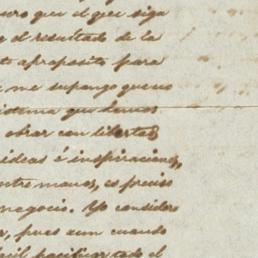 que el que siga
el resultado de la
aproposito para
me supongo que no
sistema que hemos
obrar con libertad
ideas é inspiraciones,
entre manos, es preciso
negocio. Yo considero
pues aun cuando
pacificar todo el